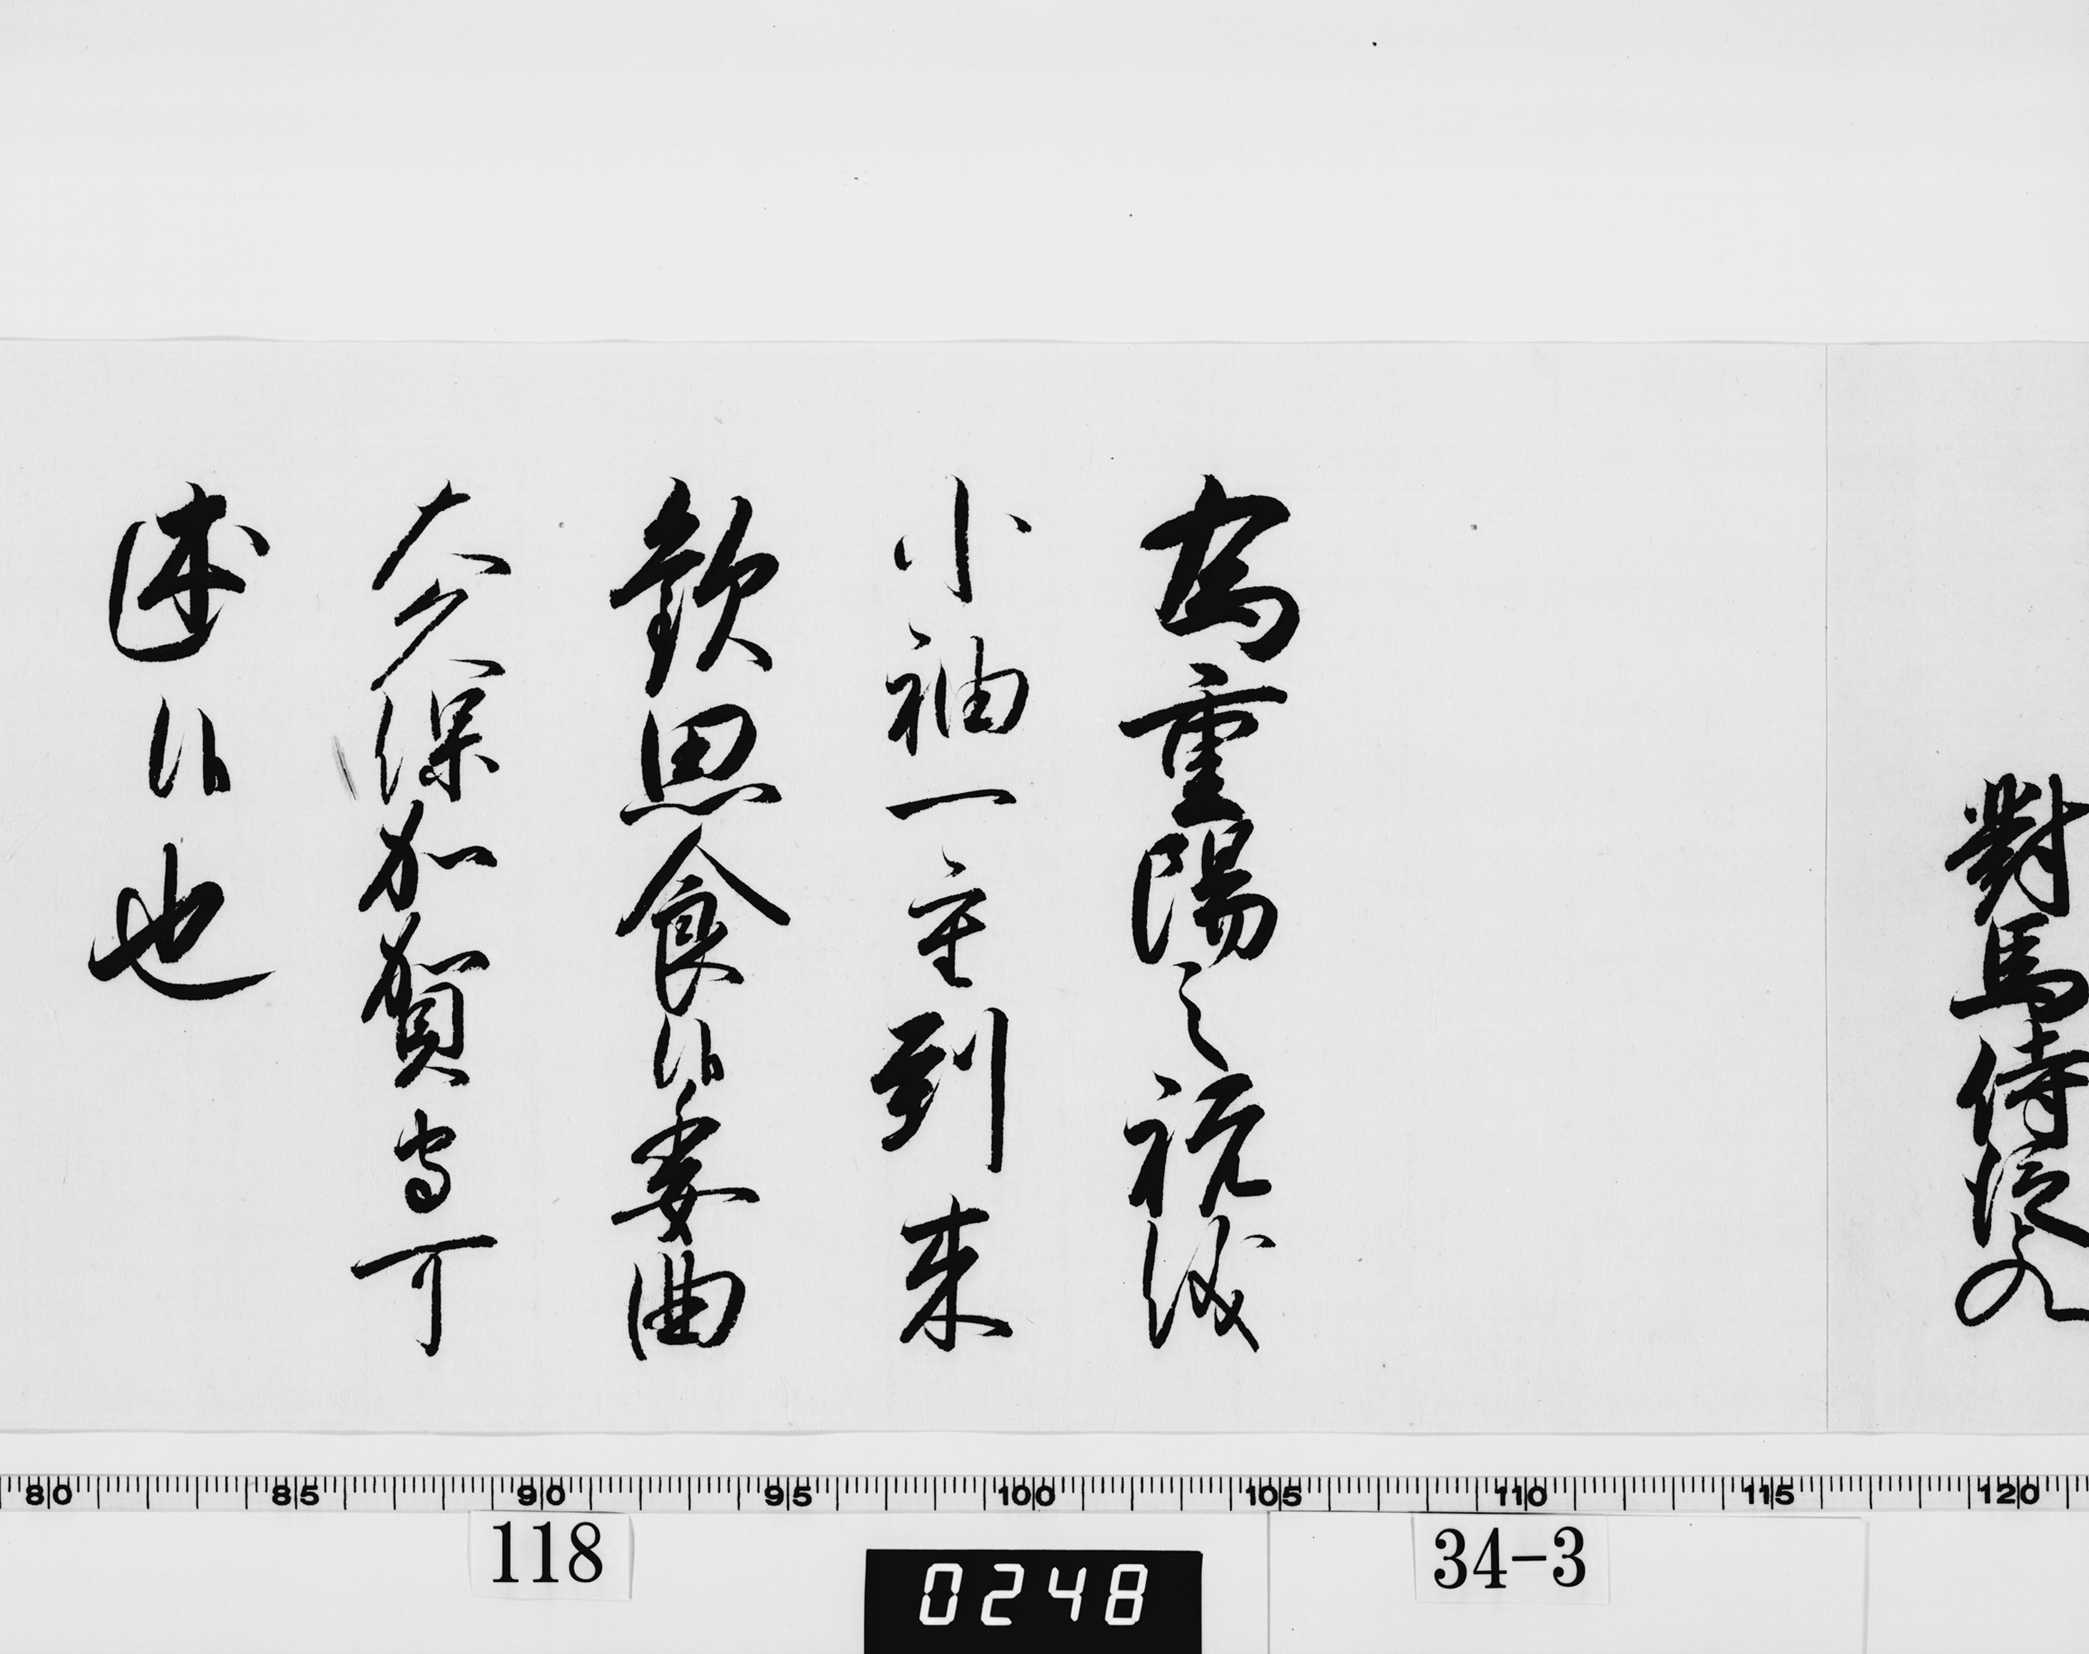 對馬侍従殿
為重陽之祝儀
小袖一重到来
歓思食候委曲
大久保加賀守可
述候也
80 85 90 95 100 105 110 115 120
118
0248
34-3